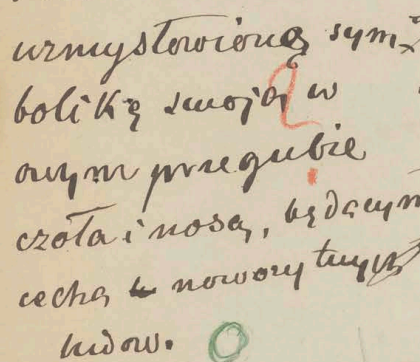 uzmysłowioną sym=
bolikę swoją w
owym przegubie
czoła i nosa, będącym
cechą nowożytnych
ludów.